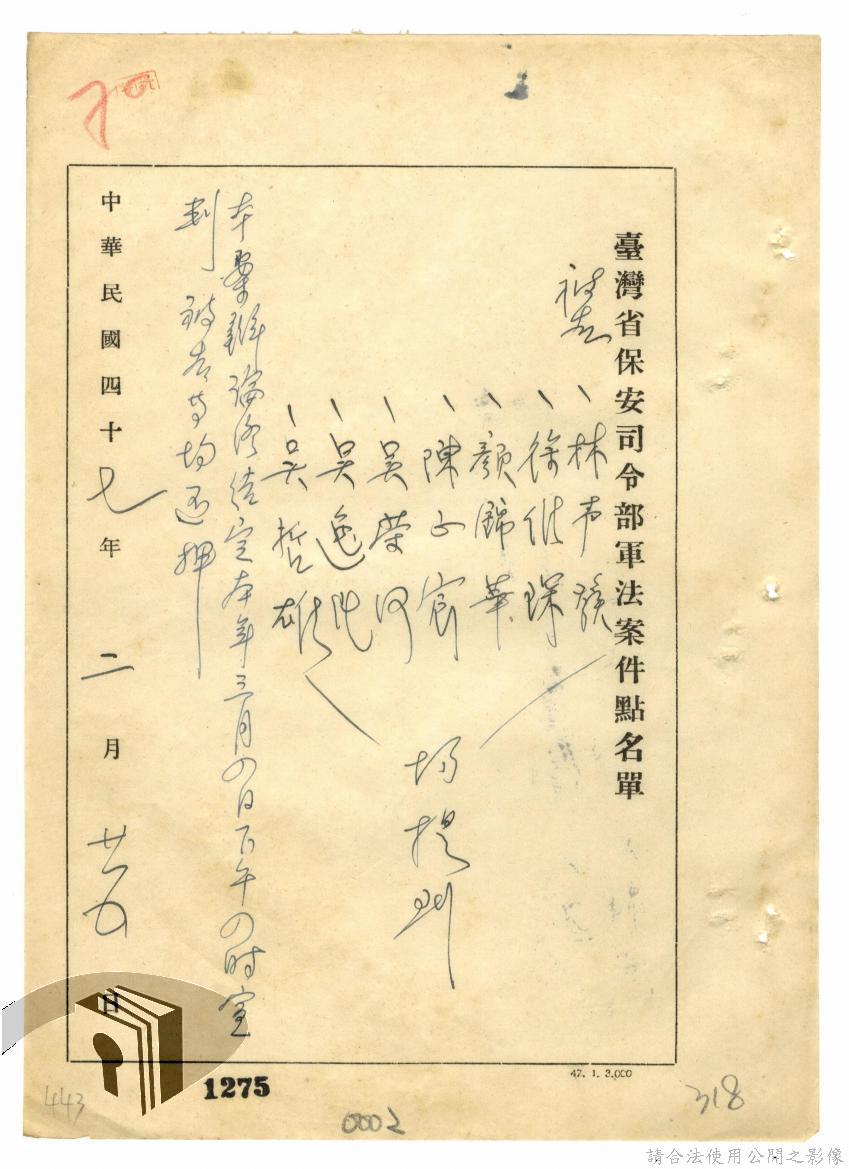 臺灣省保安司令部軍法案件點名單
被告
林声發
徐維琛
顏錦華
陳正宸
吳榮河
吳逸民
吳哲雄
均提到
本案辯論終結定本年三月四日下午四時宣
判 被告等均還押
中華民國四十七年二月廿五日
1275
47. 1. 3,000
443
0002
318
請合法使用公開之影像